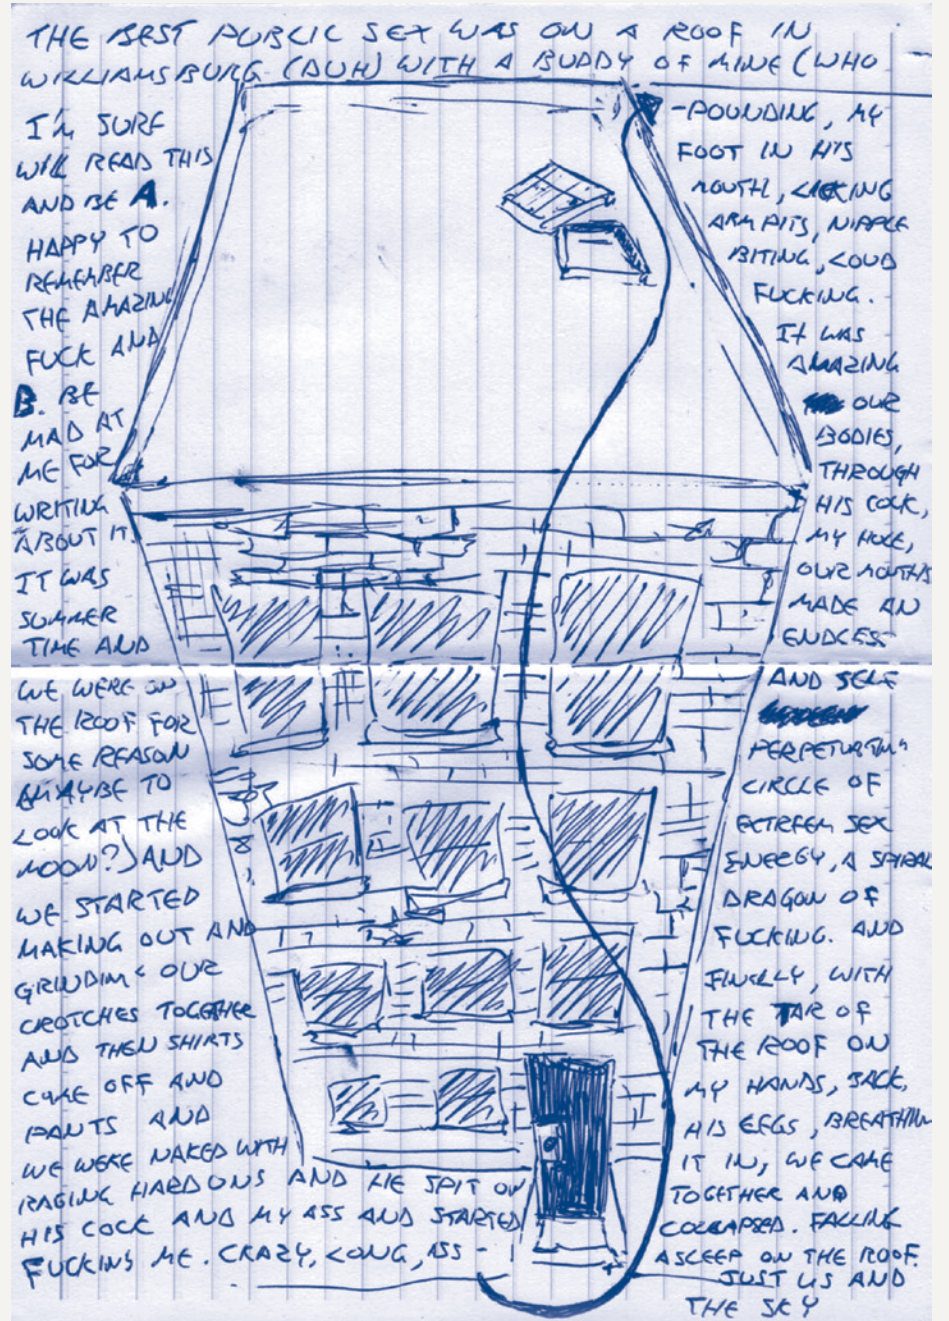 THE BEST PUBLIC SEX WAS ON A ROOF IN
WILLIAMSBURG (DUH) WITH A BUDDY OF MINE (WHO
I'M SURE
WILL READ THIS
AND BE A.
HAPPY TO
REMEMBER
THE AMAZING
FUCK AND
B. BE
MAD AT
ME FOR
WRITING
ABOUT IT
IT WAS
SUMMER
TIME AND
WE WERE ON
THE ROOF FOR
SOME REASON
(MAYBE TO
LOOK AT THE
MOON?) AND
WE STARTED
MAKING OUT AND
GRINDIN' OUR
CROTCHES TOGETHER
AND THEN SHIRTS
CAME OFF AND
PANTS AND
WE WERE NAKED WITH
RAGING HARD ONS AND HE SPIT ON
HIS COCK AND MY ASS AND STARTED
FUCKING ME. CRAZY, LONG, ASS -
-POUNDING, MY
FOOT IN HIS
MOUTH, LICKING
ARM PITS, NIPPLE
BITING, LOUD
FUCKING.
IT WAS
AMAZING
OUR
BODIES,
THROUGH
HIS COCK,
MY HOLE,
OUR MOUTHS
MADE AN
ENDLESS
AND SELF
PERPETUATIN'
CIRCLE OF
SEX
ENERGY, A SPIRAL
DRAGON OF
FUCKING. AND
FINALLY, WITH
THE TAR OF
THE ROOF ON
MY HANDS, BACK,
HIS LEGS, BREATHIN
IT IN, WE CAME
TOGETHER AND
COLLAPSED. FALLING
ASLEEP ON THE ROOF.
JUST US AND
THE SKY